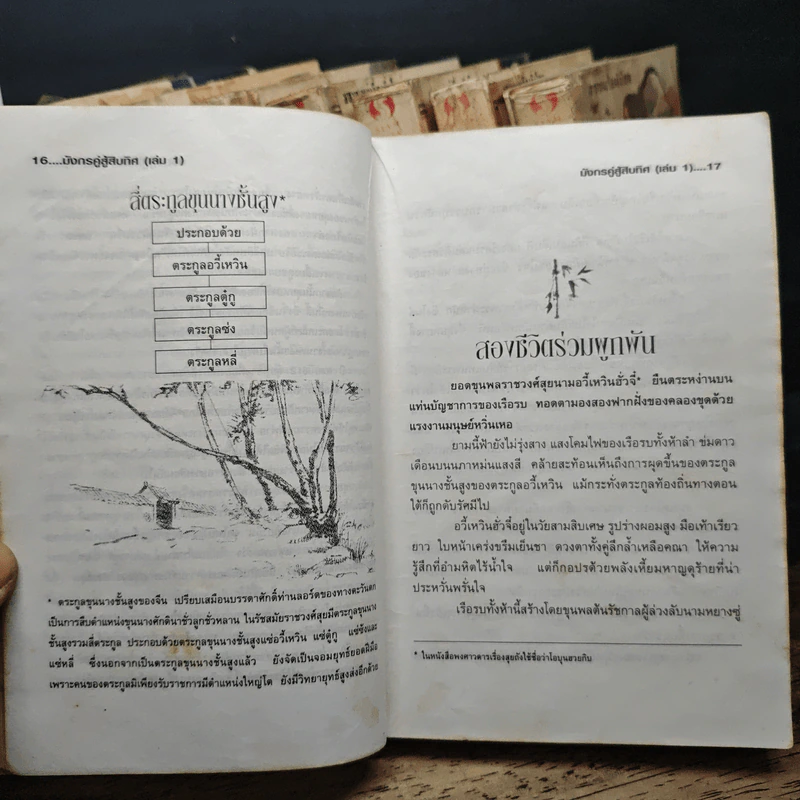 16....มังกรคู่สู้สิบทิศ (เล่ม 1)
สี่ตระกูลขุนนางชั้นสูง*
ประกอบด้วย
ตระกูลอวี้เหวิน
ตระกูลตู๋กู
ตระกูลซ่ง
ตระกูลหลี่
* ตระกูลขุนนางชั้นสูงของจีน เปรียบเสมือนบรรดาศักดิ์ท่านลอร์ดของทางตะวันตก
เป็นการสืบตำแหน่งขุนนางศักดินาชั่วลูกชั่วหลาน ในรัชสมัยราชวงศ์สุยมีตระกูลขุนนาง
ชั้นสูงรวมสี่ตระกูล ประกอบด้วยตระกูลขุนนางชั้นสูงแซ่อวี้เหวิน แซ่ตู๋กู แซ่ซ่งและ
แซ่หลี่ ซึ่งนอกจากเป็นตระกูลขุนนางชั้นสูงแล้ว ยังจัดเป็นจอมยุทธ์ยอดฝีมือ
เพราะคนของตระกูลมิเพียงรับราชการมีตำแหน่งใหญ่โต ยังมีวิทยายุทธ์สูงส่งอีกด้วย
มังกรคู่สู้สิบทิศ (เล่ม 1)....17
สองชีวิตร่วมผูกพัน
ยอดขุนพลราชวงศ์สุยนามอวี้เหวินฮั่วจี๋* ยืนตระหง่านบน
แท่นบัญชาการของเรือรบ ทอดตามองสองฟากฝั่งของคลองขุดด้วย
แรงงานมนุษย์หวิ่นเหอ
ยามนี้ฟ้ายังไม่รุ่งสาง แสงโคมไฟของเรือรบทั้งห้าลำ ข่มดาว
เดือนบนนภาหม่นแสงสี คล้ายสะท้อนเห็นถึงการผุดขึ้นของตระกูล
ขุนนางชั้นสูงของตระกูลอวี้เหวิน แม้กระทั่งตระกูลท้องถิ่นทางตอน
ใต้ก็ถูกดับรัศมีไป
อวี้เหวินฮั่วจี๋อยู่ในวัยสามสิบเศษ รูปร่างผอมสูง มือเท้าเรียว
ยาว ใบหน้าเคร่งขรึมเย็นชา ดวงตาทั้งคู่ลึกล้ำเหลือคณา ให้ความ
รู้สึกที่อำมหิตไร้น้ำใจ แต่ก็กอปรด้วยพลังเหี้ยมหาญดุร้ายที่น่า
ประหวั่นพรั่นใจ
เรือรบทั้งห้านี้สร้างโดยขุนพลต้นรัชกาลผู้ล่วงลับนามหยางซู่
* ในหนังสือพงศาวดารเรื่องสุยถังใช้ชื่อว่าโอบุนฮวยกิบ